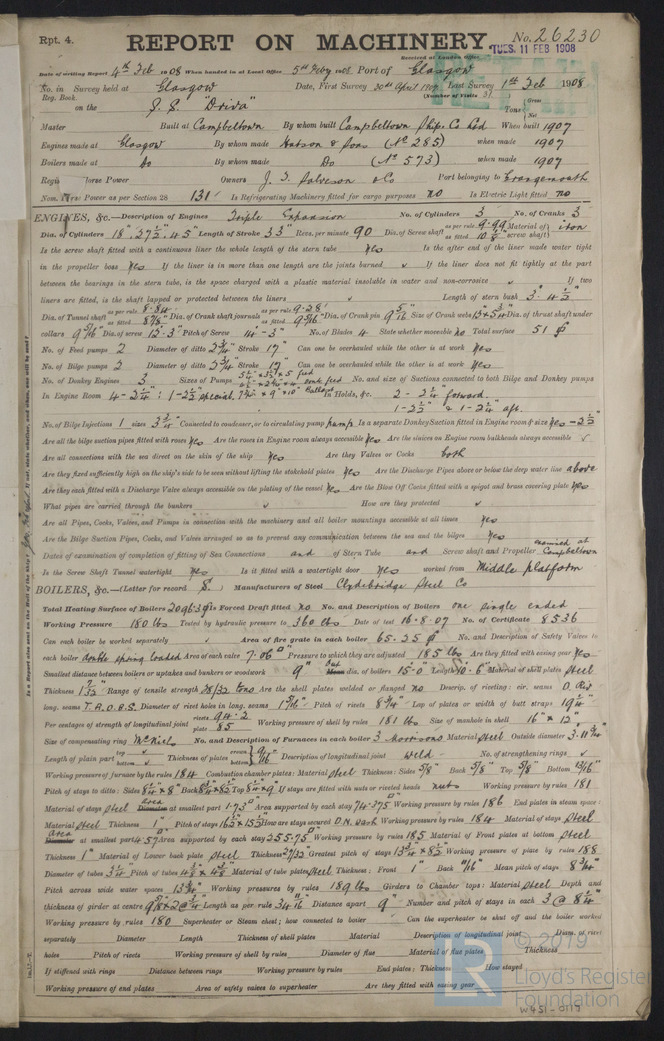 Rpt. 4.
REPORT ON MACHINERY.
No. 26230
Received at London Office
TUES. 11 FEB 1908
Date of writing Report 4th Feb 1908 When handed in at Local Office 5th Feby 1908 Port of Glasgow
No. in Survey held at Glasgow Date, First Survey 20th April 1907 Last Survey 1st Feb 1908
Reg. Book. (Number of Visits
on the S.S. "Driva" Tons Gross Net
Master Built at Campbeltown By whom built Campbeltown Ship. Co Ltd. When built 1907
Engines made at Glasgow By whom made Hutson & Sons (No 285) when made 1907
Boilers made at Do By whom made Do (No 573) when made 1907
Horse Power Owners J. T. Salvesen & Co Port belonging to Grangemouth
Nom. Power as per Section 28 131 Is Refrigerating Machinery fitted for cargo purposes no Is Electric Light fitted no
ENGINES, &c.—Description of Engines Triple Expansion No. of Cylinders 3 No. of Cranks 3
Dia. of Cylinders 18", 27½", 45" Length of Stroke 33" Revs. per minute 90 Dia. of Screw shaft as per rule 9.99 as fitted Material of screw shaft iron
Is the screw shaft fitted with a continuous liner the whole length of the stern tube yes Is the after end of the liner made water tight
in the propeller boss yes If the liner is in more than one length are the joints burned If the liner does not fit tightly at the part
between the bearings in the stern tube, is the space charged with a plastic material insoluble in water and non-corrosive If two
liners are fitted, is the shaft lapped or protected between the liners Length of stern bush 3'. 4½"
Dia. of Tunnel shaft as per rule 8.84 as fitted Dia. of Crank shaft journals as per rule 9.28 as fitted 9 5/16 Dia. of Crank pin 9 5/16 Size of Crank webs Dia. of thrust shaft under
collars 9 5/16" Dia. of screw 13'-3" Pitch of Screw 14'-3" No. of Blades 4 State whether moveable no Total surface 51
No. of Feed pumps 2 Diameter of ditto 2¾" Stroke 17" Can one be overhauled while the other is at work yes
No. of Bilge pumps 2 Diameter of ditto 2¾" Stroke 17" Can one be overhauled while the other is at work yes
No. of Donkey Engines 3 Sizes of Pumps No. and size of Suctions connected to both Bilge and Donkey pumps
In Engine Room 4 - 2¼" : 1 - 2½" special In Holds, &c. 2 - 2¼" forward.
1 - 2½" & 1 - 2¼" aft.
No. of Bilge Injections 1 sizes 3¾" Connected to condenser, or to circulating pump pump Is a separate Donkey Suction fitted in Engine room & size yes - 2½"
Are all the bilge suction pipes fitted with roses yes Are the roses in Engine room always accessible yes Are the sluices on Engine room bulkheads always accessible
Are all connections with the sea direct on the skin of the ship yes Are they Valves or Cocks both
Are they fixed sufficiently high on the ship's side to be seen without lifting the stokehold plates yes Are the Discharge Pipes above or below the deep water line above
Are they each fitted with a Discharge Valve always accessible on the plating of the vessel yes Are the Blow Off Cocks fitted with a spigot and brass covering plate yes
What pipes are carried through the bunkers How are they protected
Are all Pipes, Cocks, Valves, and Pumps in connection with the machinery and all boiler mountings accessible at all times yes
Are the Bilge Suction Pipes, Cocks, and Valves arranged so as to prevent any communication between the sea and the bilges yes
Dates of examination of completion of fitting of Sea Connections and of Stern Tube and Screw shaft and Propeller examined at Campbeltown
Is the Screw Shaft Tunnel watertight yes Is it fitted with a watertight door yes worked from Middle platform
BOILERS, &c.—(Letter for record S.) Manufacturers of Steel Clydebridge Steel Co
Total Heating Surface of Boilers Is Forced Draft fitted no No. and Description of Boilers one single ended
Working Pressure 180 lbs Tested by hydraulic pressure to 360 lbs Date of test 16.8.07 No. of Certificate 8536
Can each boiler be worked separately Area of fire grate in each boiler 65.25 No. and Description of Safety Valves to
each boiler double spring loaded Area of each valve 7.06 Pressure to which they are adjusted 185 lbs Are they fitted with easing gear yes
Smallest distance between boilers or uptakes and bunkers or woodwork 9" dia. of boilers 15'-0" Length 10'-6" Material of shell plates steel
Thickness 1 7/32 Range of tensile strength 28/32 tons Are the shell plates welded or flanged no Descrip. of riveting: cir. seams
long. seams T.R.D.B.S. Diameter of rivet holes in long. seams 1 5/16 Pitch of rivets 8¾" Lap of plates or width of butt straps 19¼"
Per centages of strength of longitudinal joint rivets 94.2 plate 85 Working pressure of shell by rules 181 lbs Size of manhole in shell 16" x 12"
Size of compensating ring McNeils No. and Description of Furnaces in each boiler 3 Morrisons Material steel Outside diameter 3'.11¾"
Length of plain part top bottom Thickness of plates crown bottom 9/16 Description of longitudinal joint weld No. of strengthening rings
Working pressure of furnace by the rules 184 Combustion chamber plates: Material steel Thickness: Sides 5/8" Back 5/8" Top 5/8" Bottom 13/16"
Pitch of stays to ditto: Sides Back Top If stays are fitted with nuts or riveted heads nuts Working pressure by rules 181
Material of stays steel area at smallest part 1.73 Area supported by each stay 74.375 Working pressure by rules 186 End plates in steam space:
Material steel Thickness 1" Pitch of stays How are stays secured D.N. Wash Working pressure by rules 184 Material of stays steel
Area at smallest part 4.57 Area supported by each stay 255.75 Working pressure by rules 185 Material of Front plates at bottom steel
Thickness 1" Material of Lower back plate steel Thickness 27/32 Greatest pitch of stays Working pressure of plate by rules 188
Diameter of tubes 3¼" Pitch of tubes Material of tube plates steel Thickness: Front 1" Back 11/16" Mean pitch of stays
Pitch across wide water spaces 13¾" Working pressures by rules 189 lbs Girders to Chamber tops: Material steel Depth and
thickness of girder at centre Length as per rule Distance apart 9" Number and pitch of stays in each 3 @
Working pressure by rules 180 Superheater or Steam chest; how connected to boiler Can the superheater be shut off and the boiler worked
separately Diameter Length Thickness of shell plates Material Description of longitudinal joint Diam. of rivet
holes Pitch of rivets Working pressure of shell by rules Diameter of flue Material of flue plates Thickness
If stiffened with rings Distance between rings Working pressure by rules End plates: Thickness How stayed
Working pressure of end plates Area of safety valves to superheater Are they fitted with easing gear
© 2019
Lloyd's Register
Foundation
W451-0117